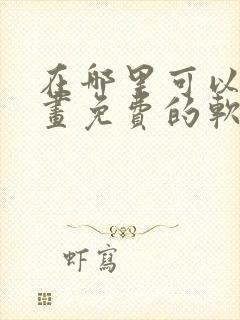 在哪里可以
畫免費的軟
虾寫